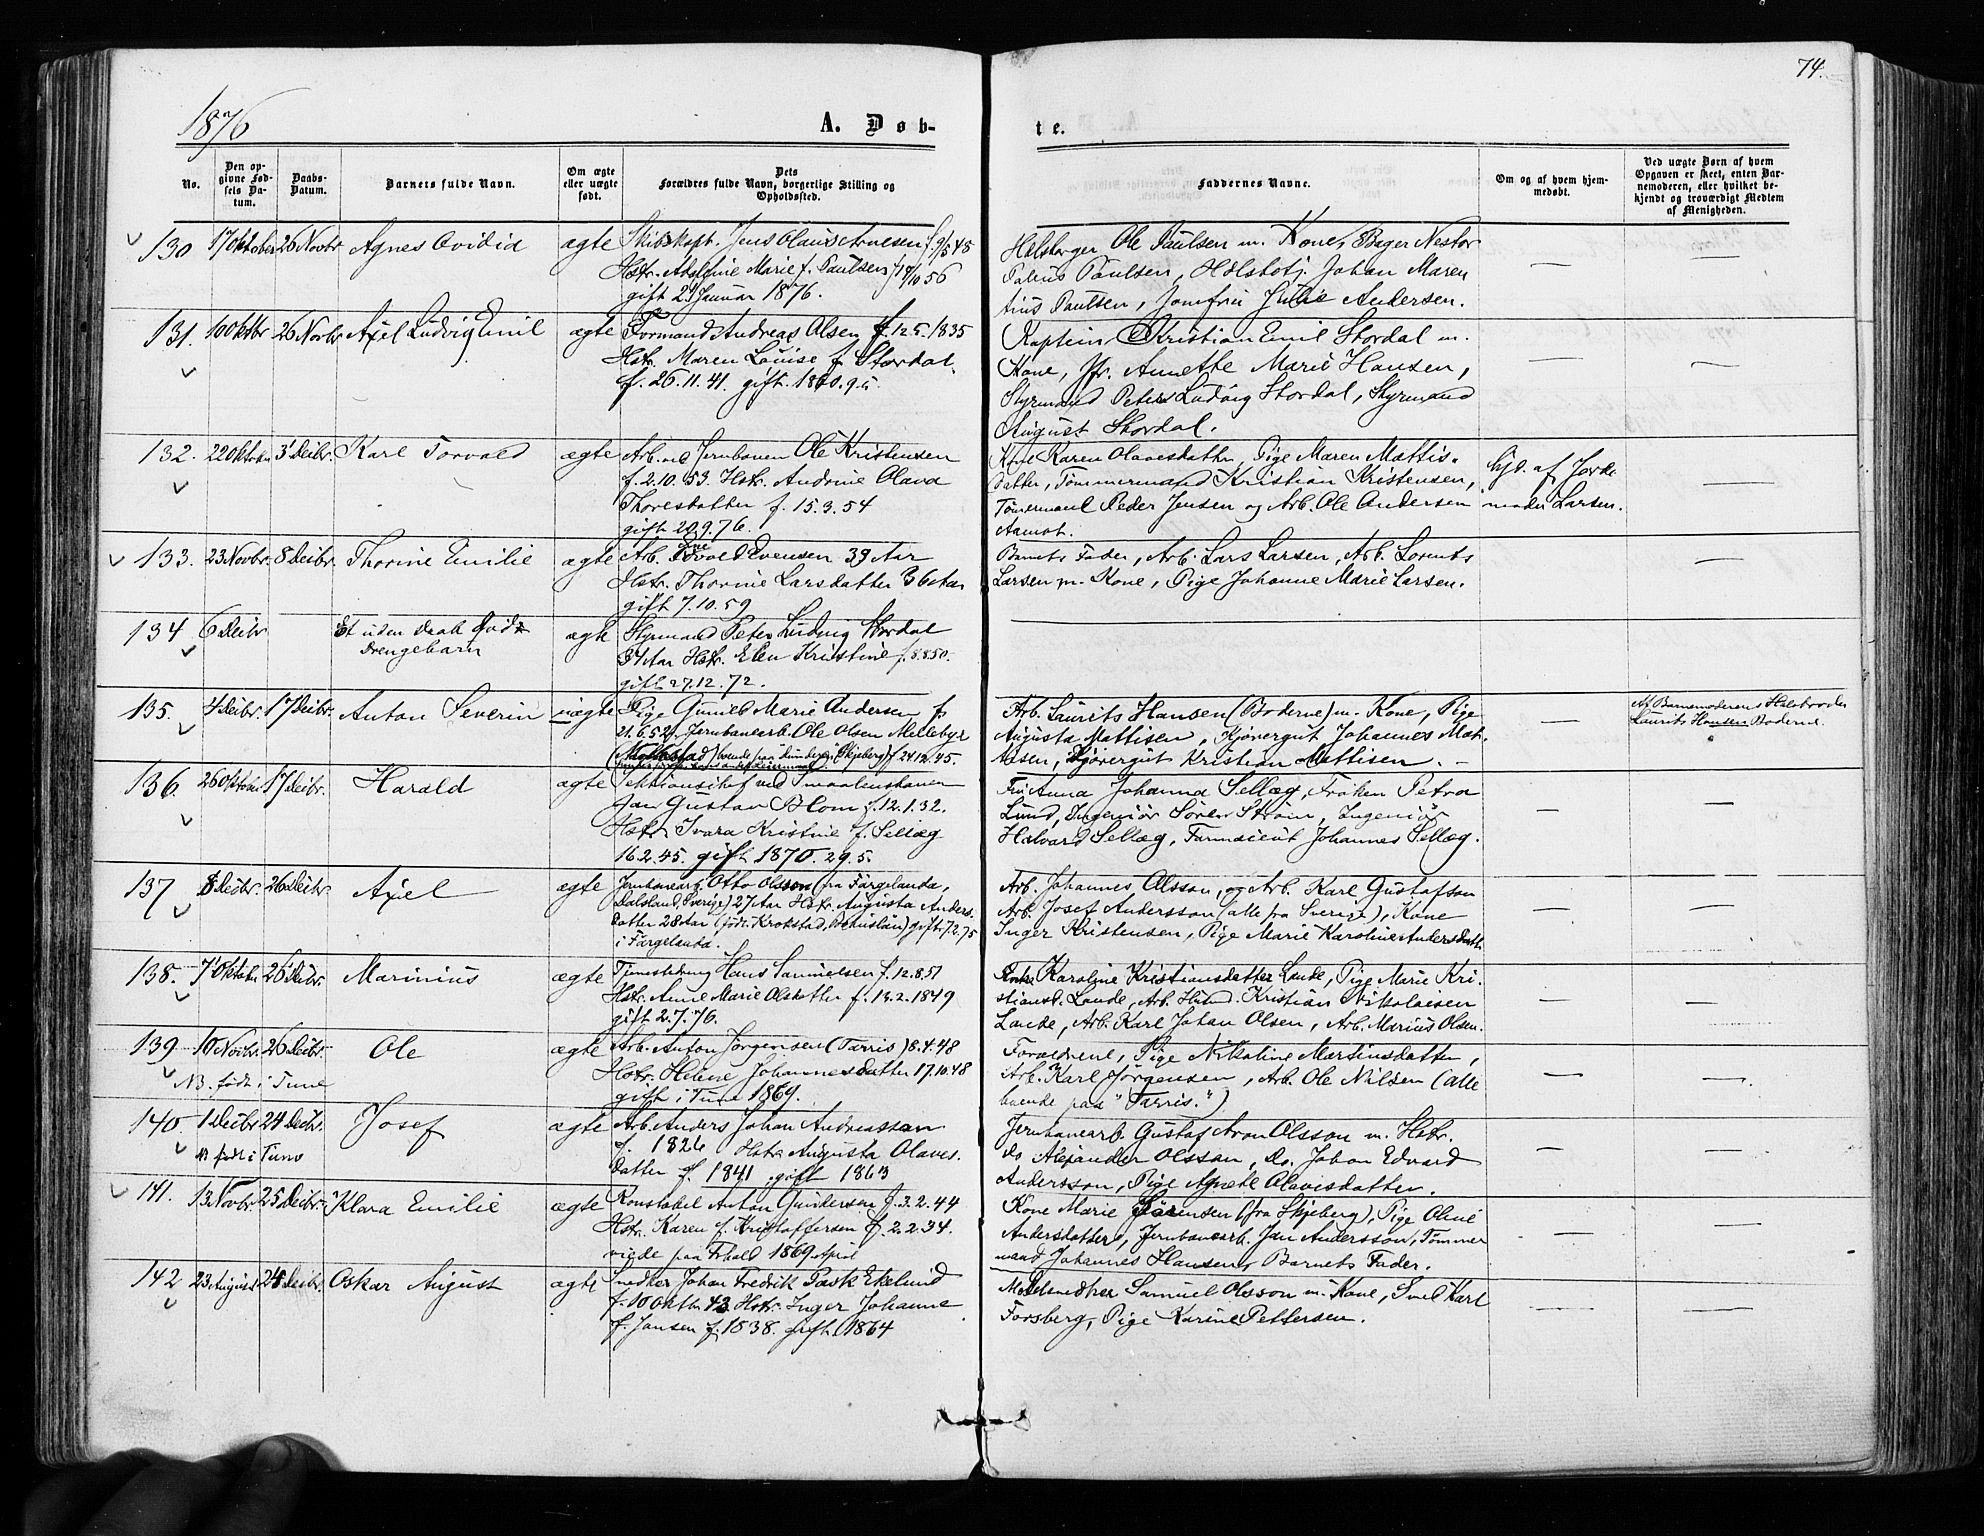 1876
A. Døb-
No.
Den op-
givne Fød-
sels Da-
tum.
Daabs-
Datum.
Barnets fulde Navn.
Om ægte
eller uægte
født.
Dets
Forældres fulde Navn, borgerlige Stilling og
Opholdssted.
130 17 Oktober 26 Novbr Agnes Ovidia ægte Skibskapt. Jens Olaus Arnesen f. 9/5 48
Hstr. Marie f. Paulsen f 19/10 56
gift 21 Januar 1876.
131. 10 Oktbr 26 Novbr Axel Ludvig Emil ægte Formand Andreas Olsen f. 12.5.1835
Hstr. Maren Louise f. Stordal.
f. 26.11.41 gift. 1860.9.5.
132. 22 Oktober 3' Decbr. Karl Torvald ægte Arb. ved Jernbanen Ole Kristensen
f. 2.10.53. Hstr. Andrine Olava
Thoresdatter f. 15.3.54
gift 20.9.76.
133. 23 Novbr. 8 Decbr. Thorine Emilie ægte Arb. Evensen 39 Aar
Hstr. Thorine Larsdatter 36 Aar
gift 7.10.59
134 6 Decbr Et uden Daab
Drengebarn ægte Styrmand Peter Ludvig Stordal
34 Aar Hstr. Elen Kristine f. 8.8.50.
gift 27.12.72.
135. 4 Decbr. 17 Decbr. Anton Severin uægte Pige Gunild Marie Andersen f.
21.6.52, Jernbanearb. Ole Olsen Mellebye
Skjeberg) f 24.12.45.
136. 26 Oktober 17 Decbr. Harald ægte Sektionschef ved Smaalensbanen
Jan Gustav Blom f. 12.1.32.
Hstr. Ivara Kristine f. Sellæg
16.2.45. gift 1870.29.5.
137 8 Decbr. 26 Decbr Axel ægte Jernbanearb. Otto Olsson (fra Färgelanda,
Dalsland, Sverige) 27 Aar Hstr. Augusta Anders-
datter 28 Aar (født Krokstad, Bohuslän) gift 7.2.75
i Färgelanda.
138. 7' Oktober 26 Decbr. Marinius ægte Tjenestedreng Hans Samuelsen f. 12.8.51
Hstr. Anne Marie Olsdatter f. 13.2.1849
gift 2.7.76.
139 10 Novbr. 26 Decbr. Ole ægte Arb. Anton Jørgensen (Tarris) 8.4.48
Hstr. Helene Johannesdatter 17.10.48
NB. født i Tune gift i Tune 1869.
140 1 Decbr 24 Decbr. Josef ægte Arb. Anders Johan Andreassen
f. 1826 Hstr Augusta Olaves-
NB født i Tune datter f. 1841 gift 1863
141. 13 Novbr. 25 Decbr. Klara Emilie ægte Konstabel Anton Gundersen f. 3.2.44
Hstr. Karen f. Kristoffersen f. 2.2.34.
viede paa 1869 April
142 23 August 25 Decbr. Oskar August ægte Snedker Johan Fredrik Pask Ekelund
f. 10 Oktbr 43 Hstr. Inger Johanne
f. Jansen f. 1838. gift 1864
74.
te.
Faddernes Navne.
Om og af hvem hjem-
medøbt.
Ved uægte Børn af hvem
Opgaven er skeet, enten Bar-
nemoderen, eller hvilket be-
kjendt og troværdigt Medlem
af Menigheden.
Ole Paulsen m. Kone, Bager Nestor
Paulsen, Johan Maren
tius Paulsen, Jomfru Julie Andersen.
Kaptein Kristian Emil Stordal m.
Kone, Jfr. Annette Marie Hansen,
Styrmand Peter Ludvig Stordal, Styrmand
August Stordal.
Kone Karen Olavesdatter, Pige Maren Mattis-
datter, Tømmermand Kristian Kristensen,
Tømermand Peder Jensen og Arb. Ole Andersen
Aamot.
hjd. af Jorde
moder Larsen.
Barnets Fader, Arb. Lars Larsen, Arb. Lorents
Larsen m. Kone, Pige Johanne Marie Larsen.
Arb. Laurits Hansen (Boderne) m. Kone, Pige
Augusta Mattisen, Kjøreergut Johannes Mat-
tisen, Kjørergut Kristian Mattisen.
Af Barnemoderens Halvbroder
Laurits Hansen Boderne.
Fru Anna Johanna Sellæg, Frøken Petra
Lund, Ingeniør Søren Strøm, Ingeniør
Halvard Sellæg, Farmaceut Johannes Sellæg.
Arb. Johannes Olsson, og Arb. Karl Gustafson
Arb. Josef Andersson (alle fra Sverige), Kone
Inger Kristensen, Pige Marie Karoline Andersdatt.
Karoline Kristiansdatter Lande, Pige Marie Kri-
stiansd. Lande, Arb. Kristian Nikolaisen
Lande, Arb. Karl Johan Olsen, Arb. Marius Olsen.
Forældrene, Pige Nikoline Martinsdatter,
Arb. Karl Jørgensen, Arb. Ole Nilsen (alle
boende paa "Tarris.")
Jernbanearb. Gustaf Aron Olsson m. Hstr.
Do Alexander Olsson, Do. Johan Edvard
Andersson, Pige Agnete Olavesdatter.
Kone Marie Sørensen (fra Skjeberg), Pige Oline
Andersdatter, Jernbanearb. Jan Andersson, Tømmer
mand Johannes Hansen, Barnets Fader.
Samuel Olsson m. Kone, Karl
Forsberg, Pige Karine Pettersen.